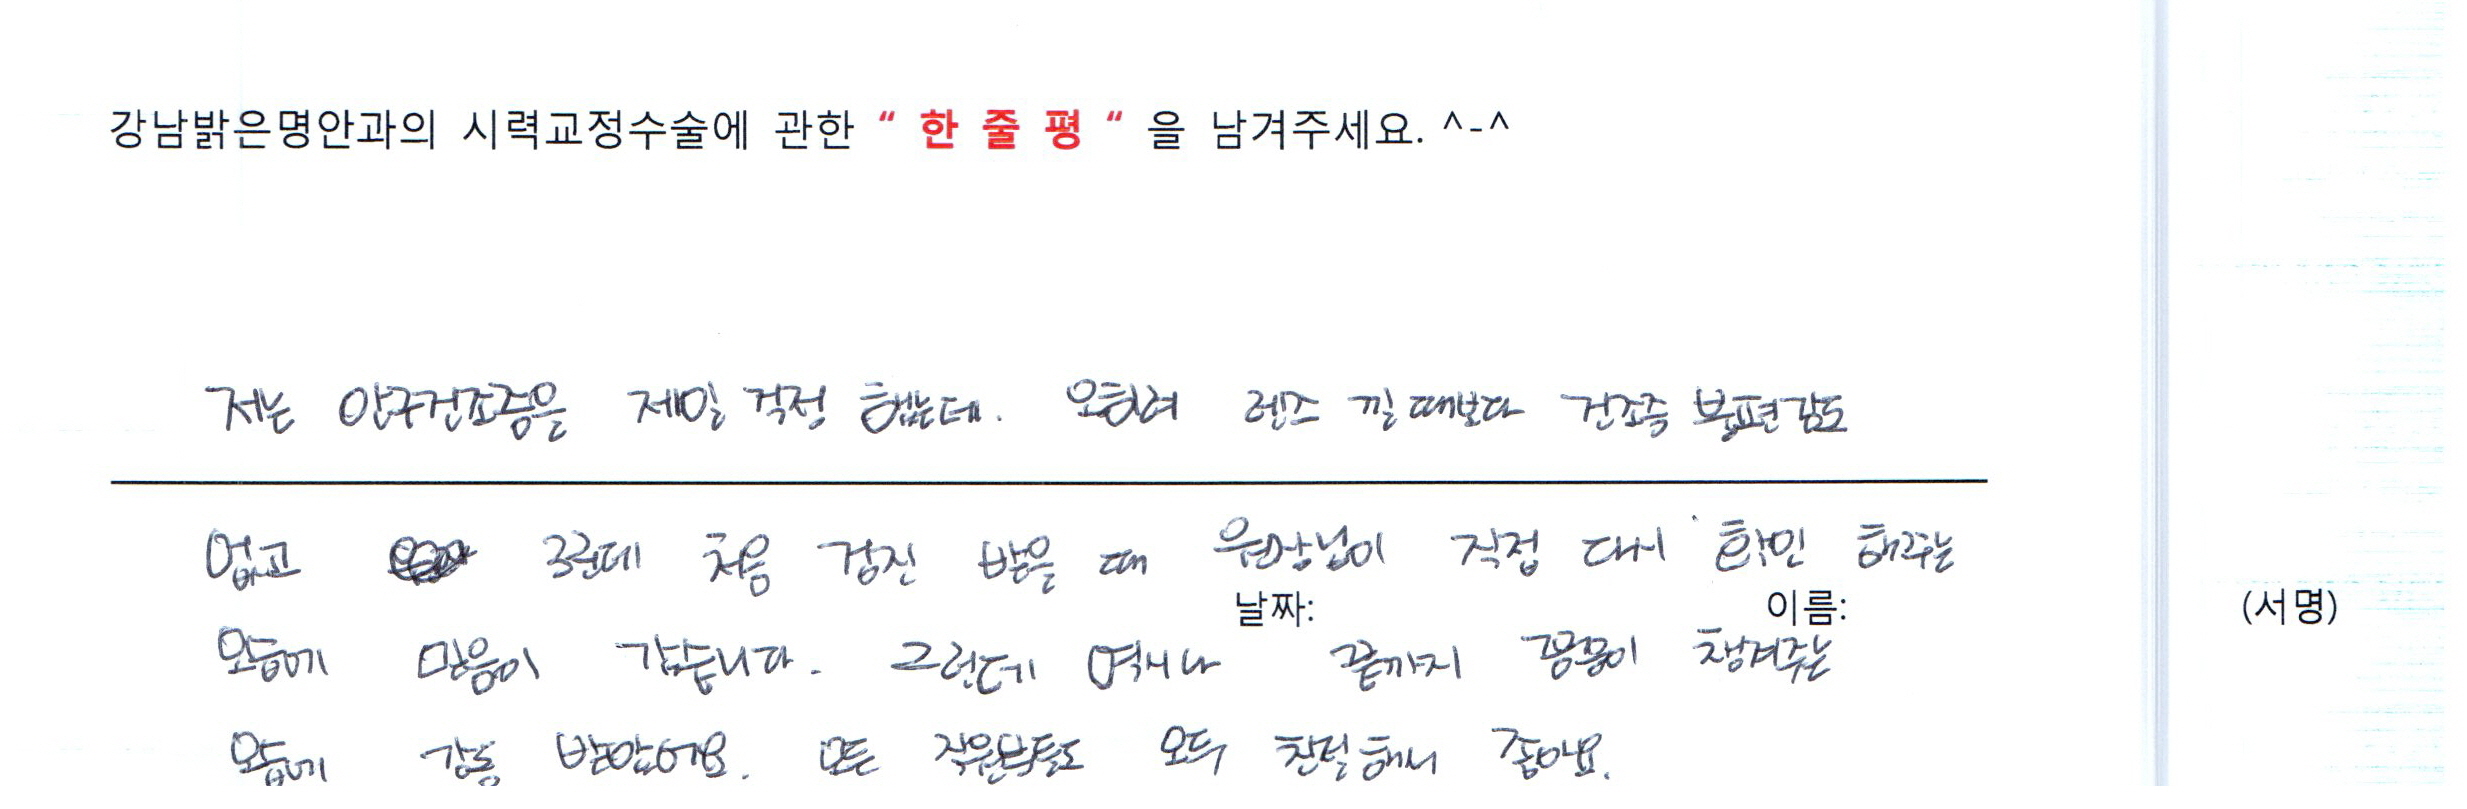 강남밝은명안과의 시력교정수술에 관한 “ 한 줄 평 “ 을 남겨주세요. ^-^
저는 안구건조증을 제일 걱정 했는데. 오히려 렌즈 낄 때보다 건조증 불편감도
없고 그런데 처음 검진 받을 때 원장님이 직접 다시 확인 해주는
날짜: 이름: (서명)
모습에 믿음이 갔습니다. 그런데 역시나 끝까지 꼼꼼이 챙겨주는
모습에 감동 받았어요. 모든 직원분들도 모두 친절해서 좋아요.